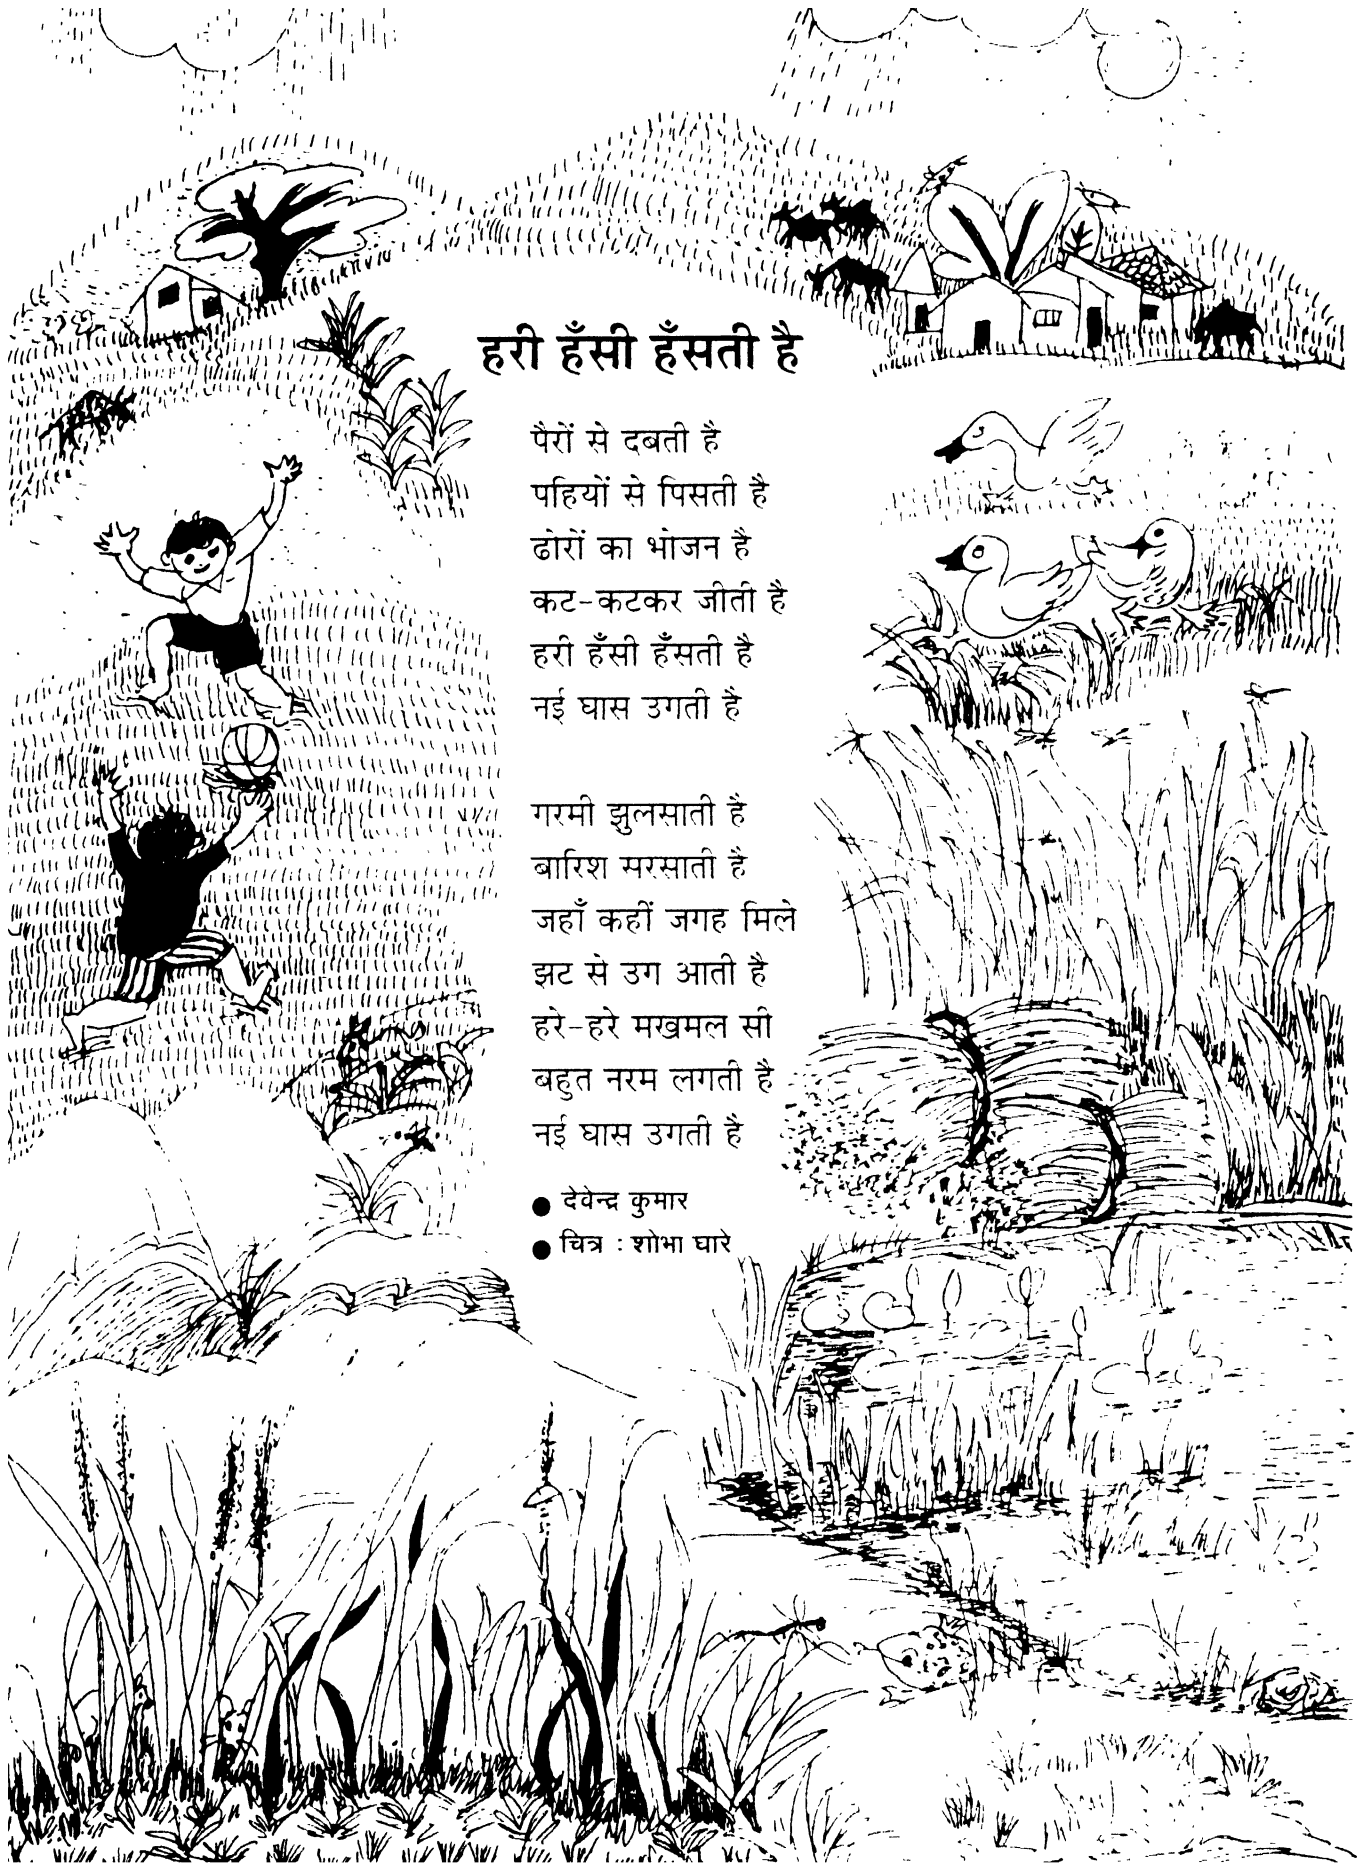 हरी हँसी हँसती है
पैरों से दबती है
पहियों से पिसती है
ढोरों का भोजन है
कट-कटकर जीती है
हरी हँसी हँसती है
नई घास उगती है
गरमी झुलसाती है
बारिश सरसाती है
जहाँ कहीं जगह मिले
झट से उग आती है
हरे-हरे मखमल सी
बहुत नरम लगती है
नई घास उगती है
● देवेन्द्र कुमार
● चित्र : शोभा घारे